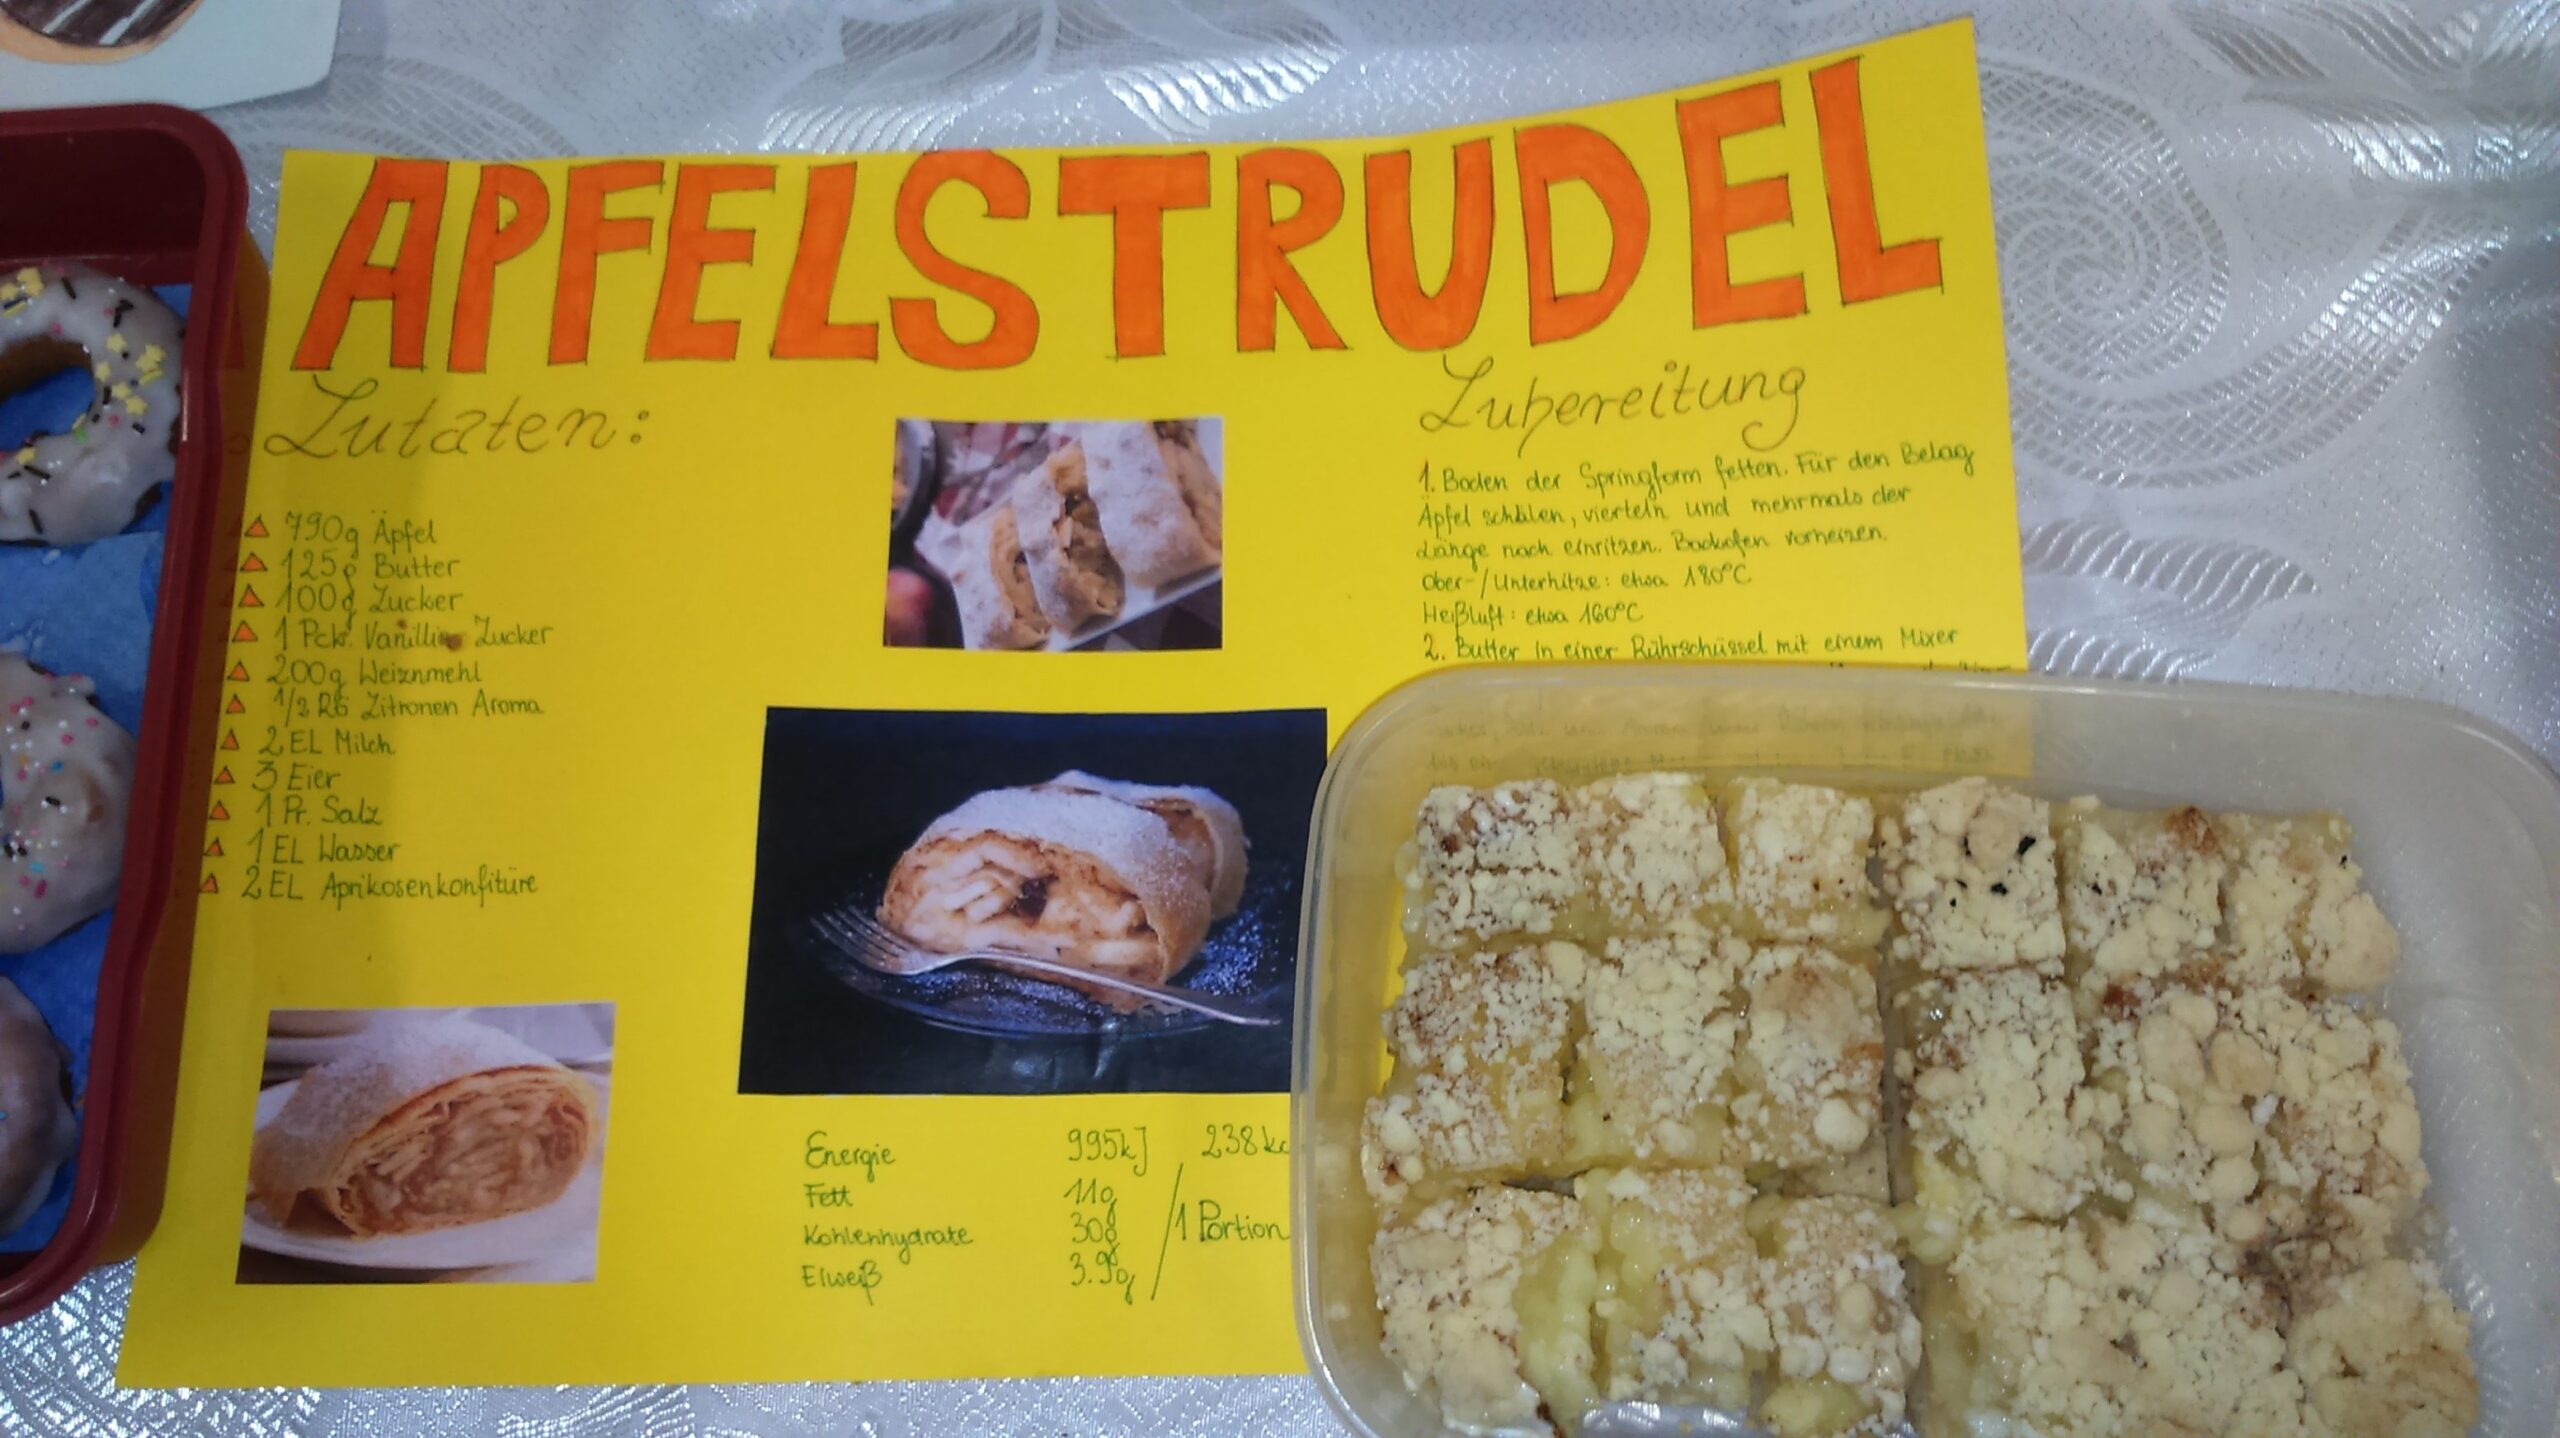 APFELSTRUDEL
Zutaten:
790g Äpfel
125g Butter
100g Zucker
1 Pck. Vanillin Zucker
200g Weiznmehl
1/2 Rö Zitronen Aroma
2 EL Milch
3 Eier
1 Pr. Salz
1 EL Wasser
2 EL Aprikosenkonfitüre
Energie 995kJ 238kc
Fett 11g
Kohlenhydrate 30g / 1 Portion
Eiweiß 3.9g
Zubereitung
1. Boden der Springform fetten. Für den Belag
Äpfel schälen, vierteln und mehrmals der
Länge nach einritzen. Backofen vorheizen.
Ober-/Unterhitze: etwa 180°C
Heißluft: etwa 160°C
2. Butter in einer Rührschüssel mit einem Mixer